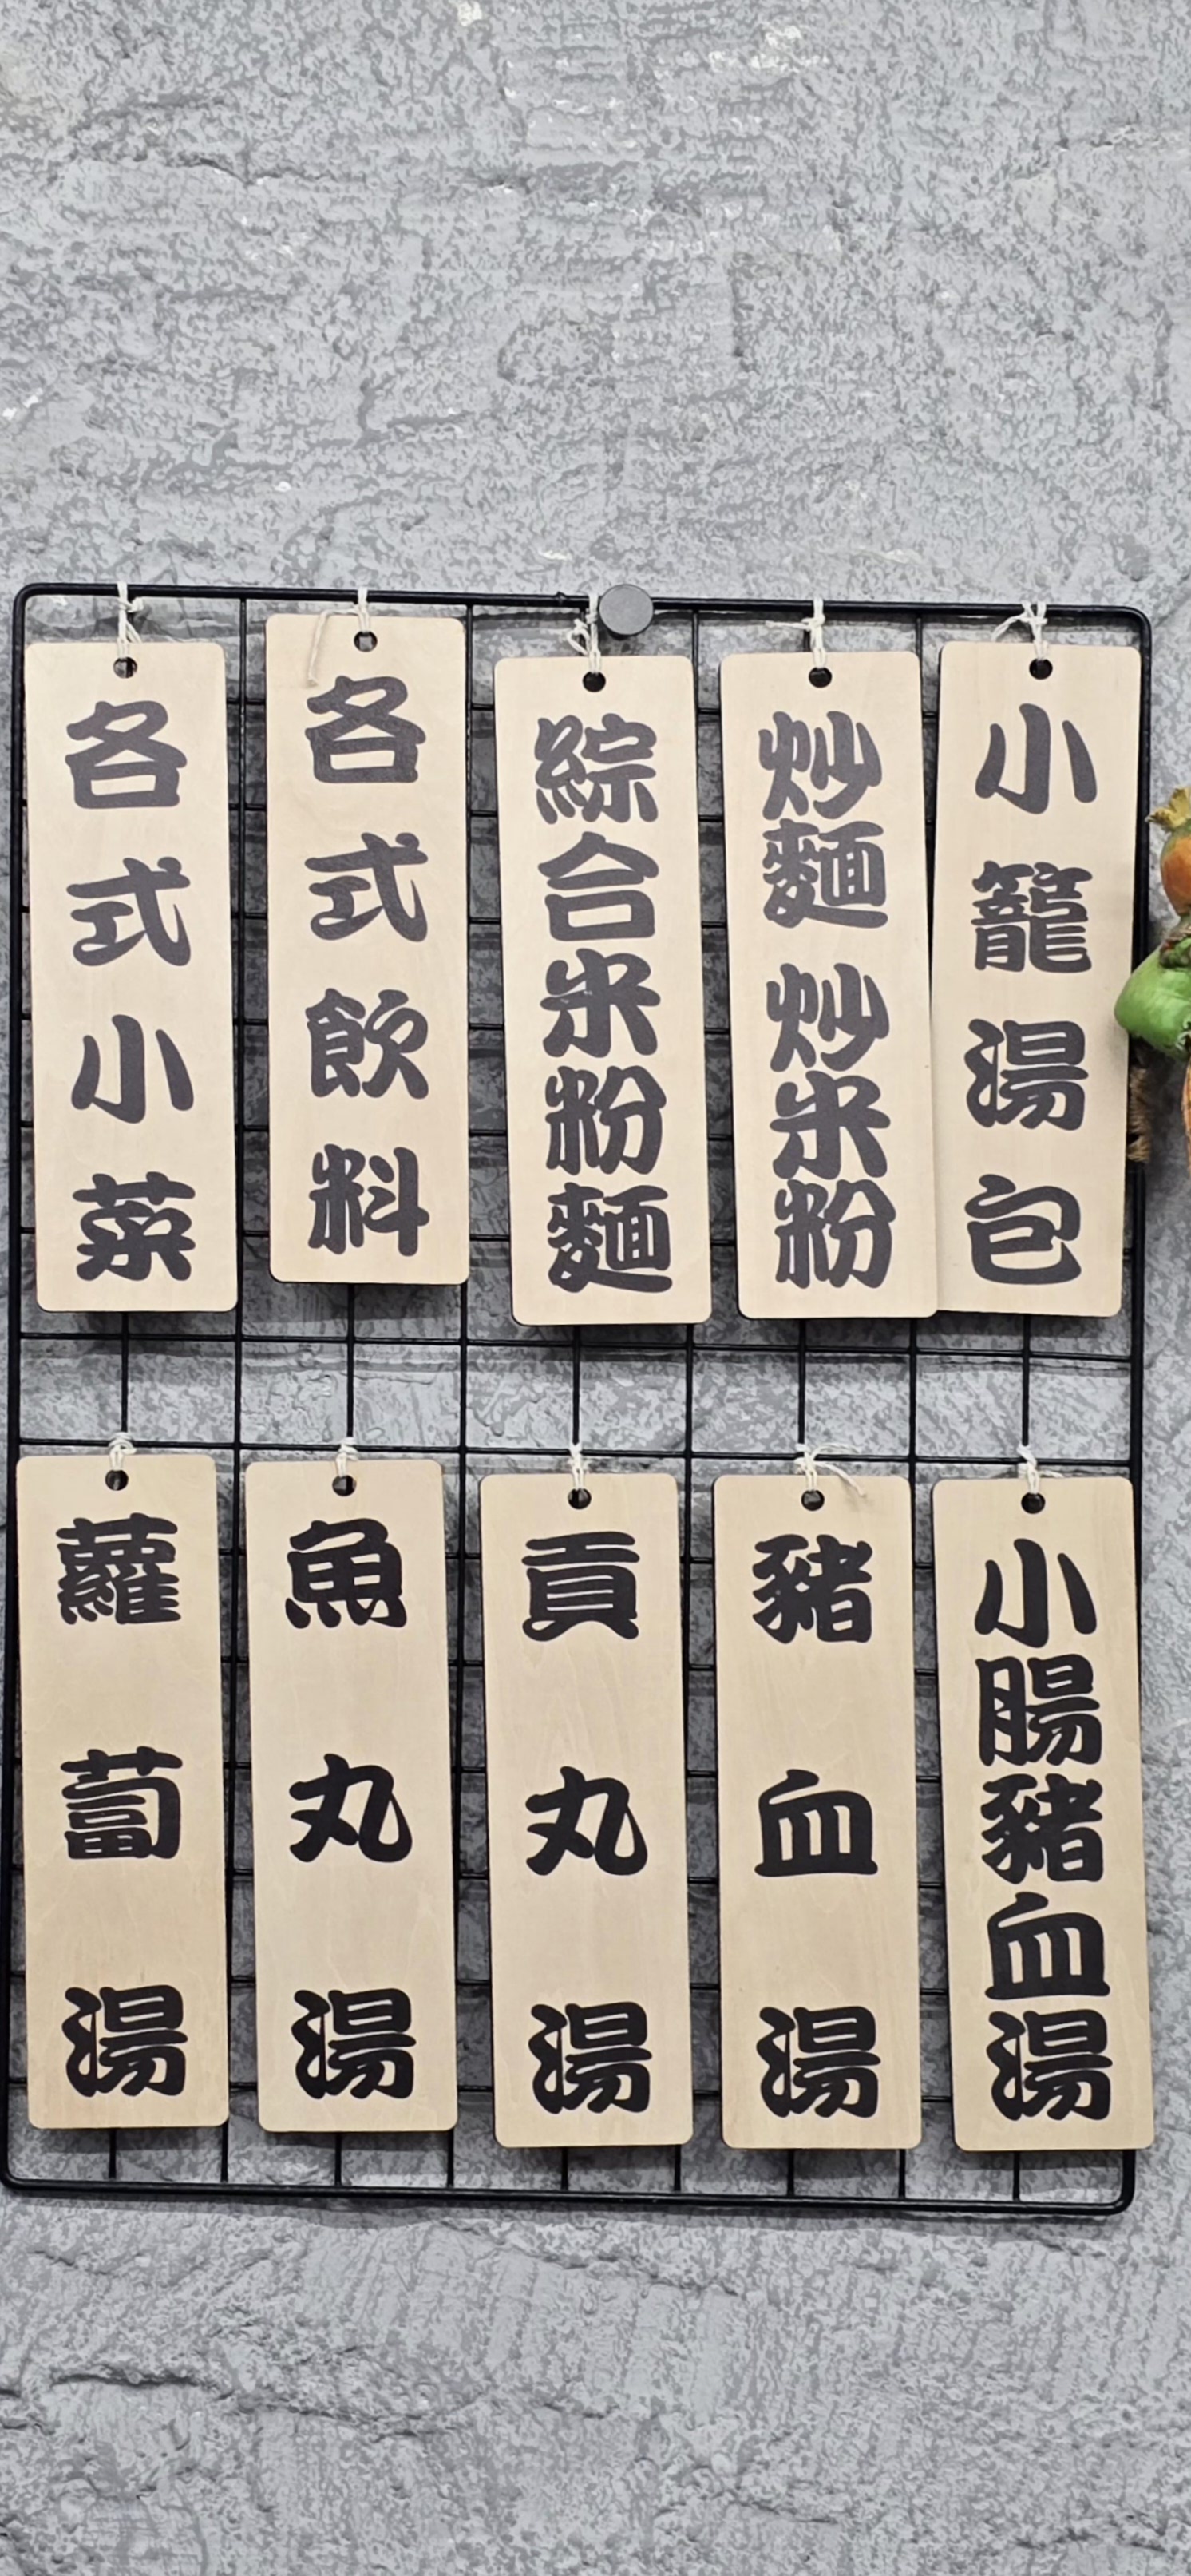 小籠湯包
炒麵 炒米粉
綜合米粉麵
各式飲料
各式小菜
小腸豬血湯
豬血湯
貢丸湯
魚丸湯
蘿蔔湯